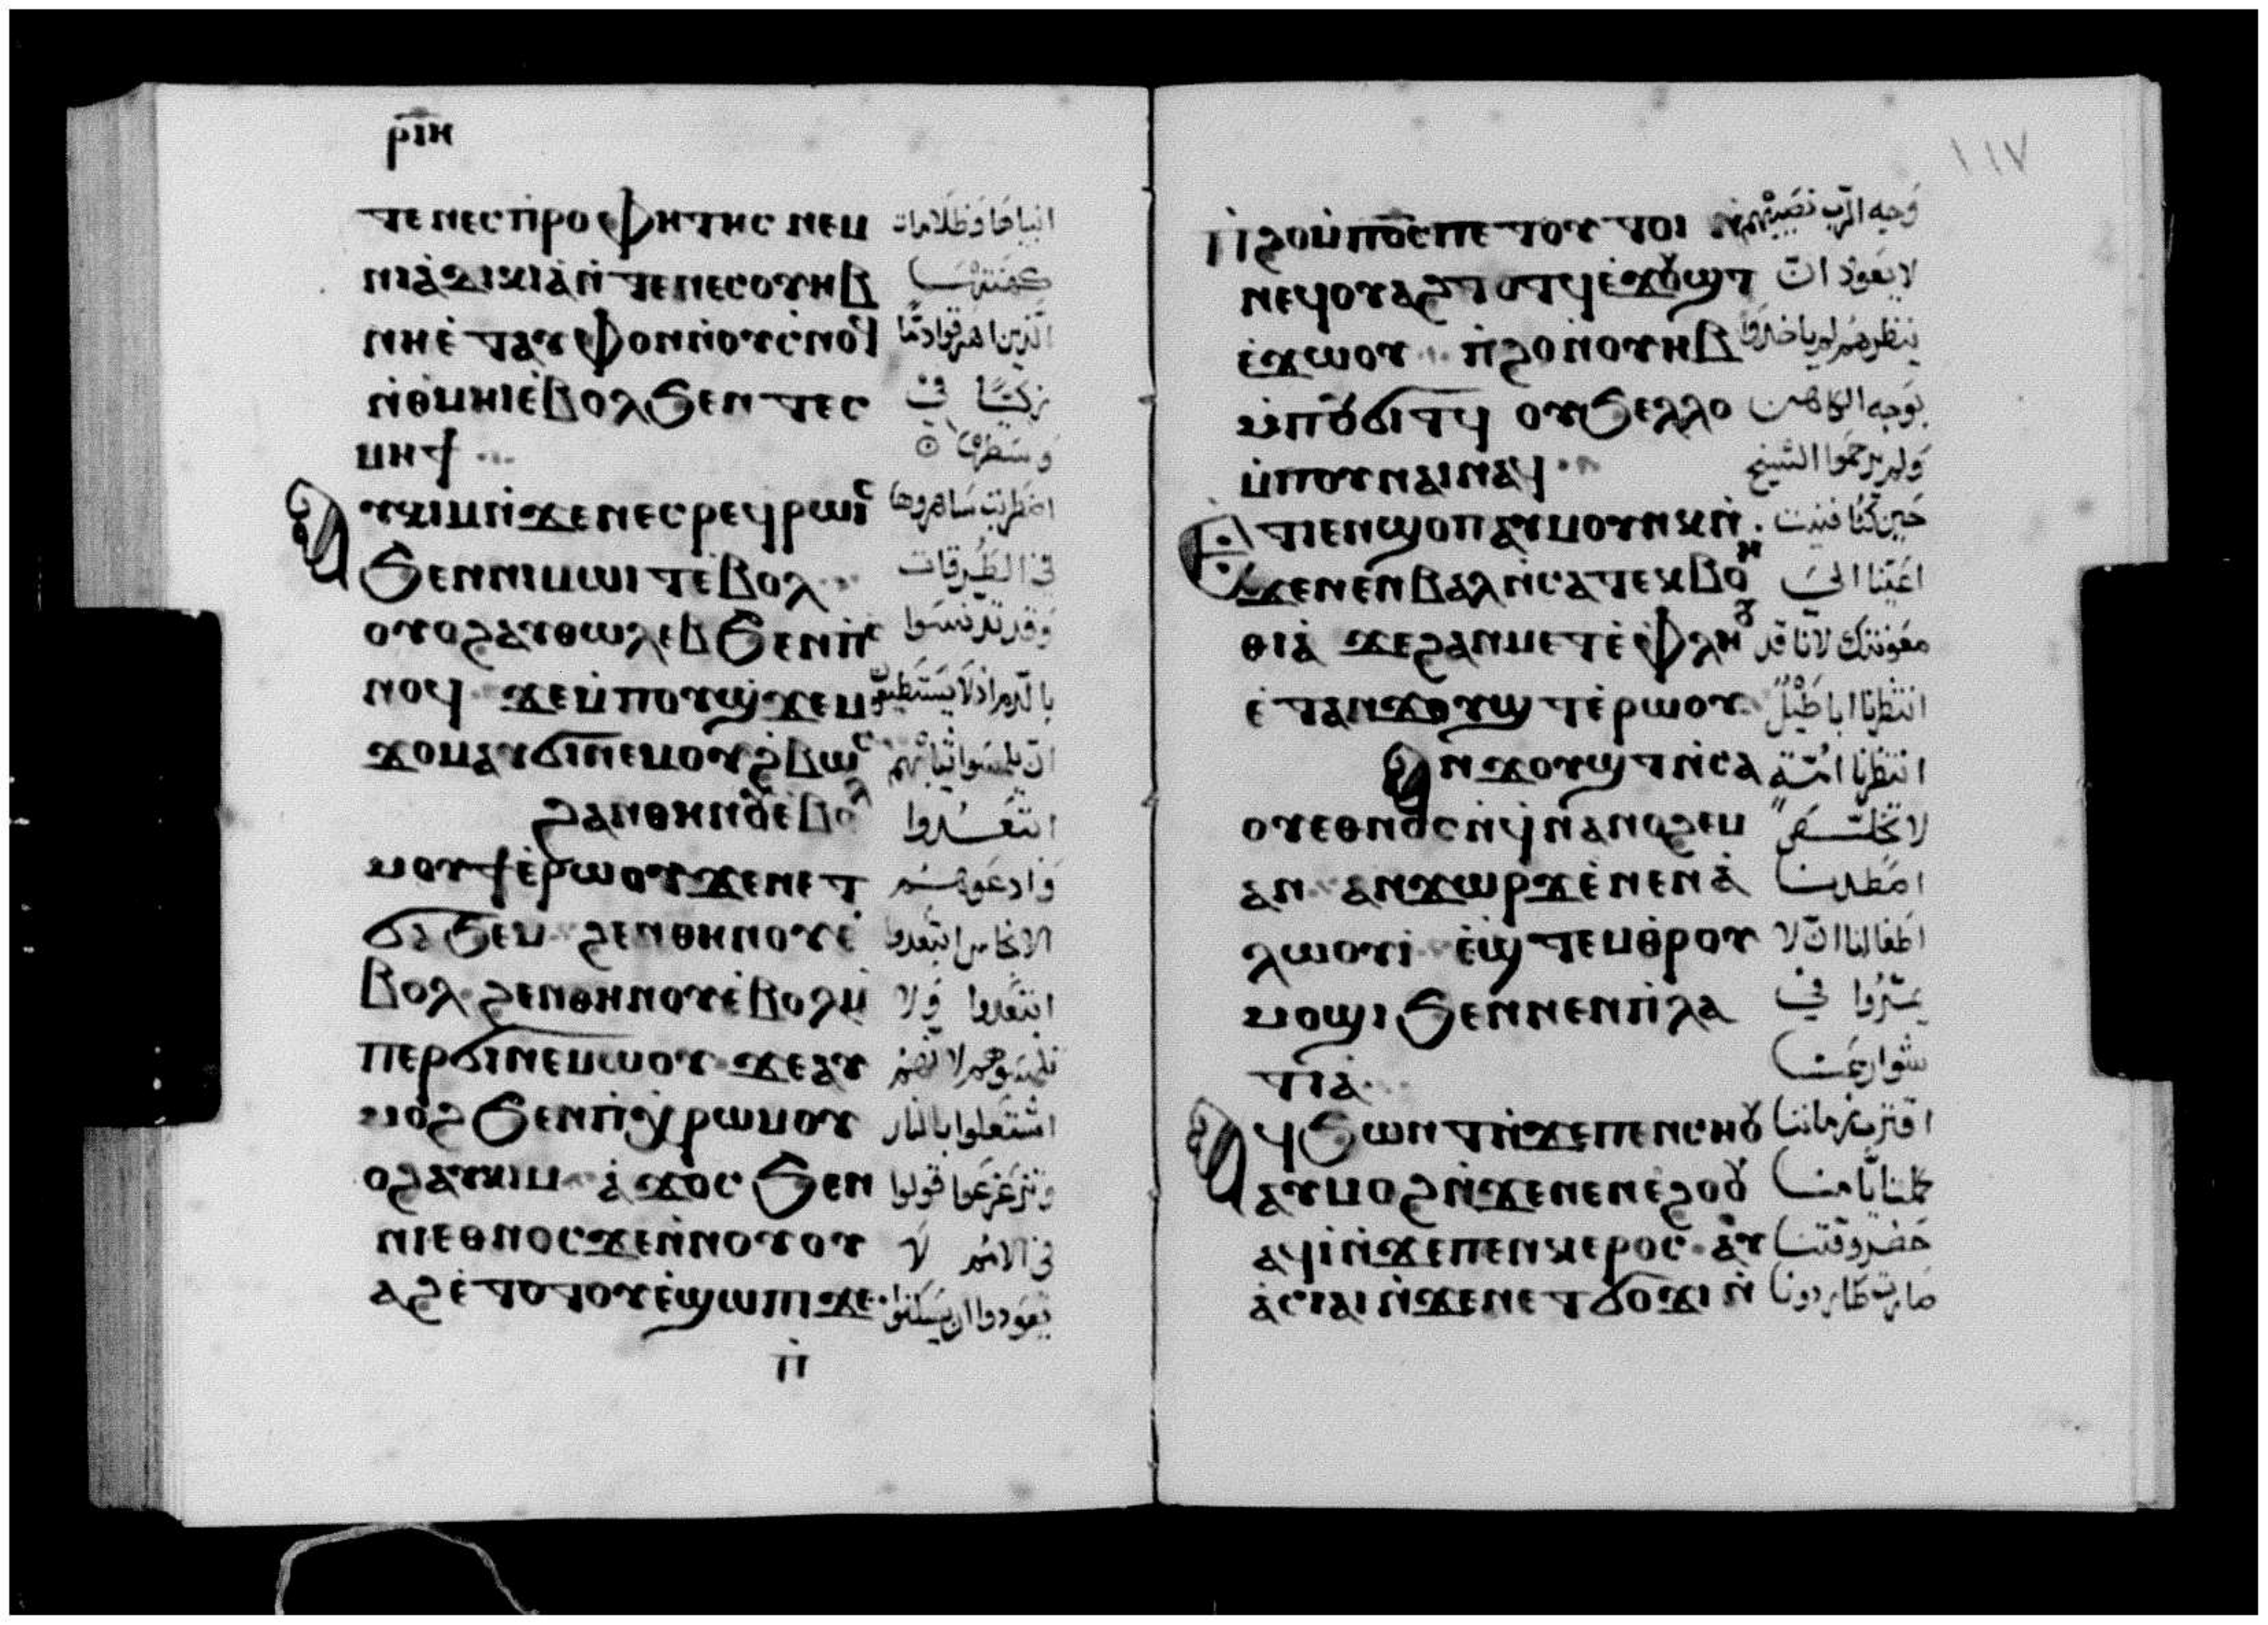 ⲣⲓⲏ
ⲧⲉ ⲛⲉⲥⲡⲣⲟⲫⲏⲧⲏⲥ ⲛⲉⲙ انبياها وظلامات
ⲛⲓⲁ̀ⲇⲓⲕⲓⲁ̀ ⲛ̀ⲧⲉ ⲛⲉⲥⲟⲩⲏⲃ كهنتها
ⲛⲏⲉ̀ⲧⲁⲩⲫⲟⲛ ⲛ̀ⲟⲩⲥ̀ⲛⲟϥ الذين اهرقوا دمًا
ⲛ̀ⲑⲙⲏⲓ ⲉ̀ⲃⲟⲗ ϧⲉⲛ ⲧⲉⲥ زكيًا في
ⲙⲏϯ وسطها
ⲁⲩⲕⲓⲙ ⲛ̀ϫⲉ ⲛⲉⲥⲣⲉϥⲣⲱⲓⲥ اضطربت ساهروها
ϧⲉⲛ ⲛⲓⲙⲱⲓⲧ ⲉ̀ⲃⲟⲗ في الطرقات
ⲟⲩⲟϩ ⲁⲩⲑⲱⲗⲉⲃ ϧⲉⲛ ⲡⲥ وقد تدنسوا
ⲛⲟϥ ϫⲉ ⲙ̀ⲡⲟⲩϣϫⲉⲙ بالدم اذ لا يستطيعوا
ϫⲟⲙ ⲁⲩϭⲓⲛⲉⲙ ⲟⲩϩⲃⲱⲥ ان يلبسوا ثيابهم
ϩⲁⲛⲑⲏⲛⲟⲩ ⲉ̀ⲃⲟⲗ ابتعدوا
ⲙⲟⲩϯ ⲉ̀ⲣⲱⲟⲩ ϫⲉ ⲛⲉⲧ وادعوهم
ϭⲁϧⲉⲙ ϩⲉⲛⲑⲏⲛⲟⲩ ⲉ̀ الانجاس ابتعدوا
ⲃⲟⲗ ϩⲉⲛⲑⲏⲛⲟⲩ ⲉ̀ⲃⲟⲗ ⲙ̀ ابتعدوا ولا
ⲡⲉⲣϭⲓⲛⲉⲙⲱⲟⲩ ϫⲉ ⲁⲩ تلمسوهم لانهم
ⲙⲟϩ ϧⲉⲛ ⲡⲓⲭⲣⲱⲙ ⲟⲩ اشتعلوا بالنار
ⲟϩ ⲁⲩⲕⲓⲙ ⲁ̀ϫⲟⲥ ϧⲉⲛ وتزعزعوا قولوا
ⲛⲓⲉⲑⲛⲟⲥ ϫⲉ ⲛ̀ⲛⲟⲩⲟⲩ في الامم لا
ⲁϩⲉ̀ⲧⲟⲧⲟⲩ ⲉ̀ϣⲱⲡⲓ ϫⲉ يعودوا ان يسكنوا
ⲡ̀
١١٧
ⲡ̀ϩⲟ ⲙ̀ⲡⲟ̅ⲥ̅ ⲡⲉ ⲧⲟⲩⲧⲟⲓ وجه الرب نصيبهم
ⲛⲉϥⲟⲩⲁϩⲧⲟⲧϥ ⲉ̀ϫⲟⲩϣⲧ لا يعود ان
ⲉ̀ϫⲱⲟⲩ ⲡ̀ϩⲟ ⲛ̀ⲟⲩⲏⲃ ينظرهم لم ياخذوا
ⲙ̀ⲡⲟⲩϭⲓⲧϥ ⲟⲩϧⲉⲗⲗⲟ بوجه الكاهن
ⲙ̀ⲡⲟⲩⲛⲁⲓ ⲛⲁϥ ولم يرحموا الشيخ
ⲉⲧⲓ ⲉⲛϣⲟⲡ ⲁⲩⲙⲟⲩⲛⲕ ⲛ̀ حين كنا فنيت
ϫⲉ ⲛⲉⲛⲃⲁⲗ ⲛ̀ⲥⲁ ⲧⲉⲕⲃⲟⲏ اعيننا الى
ⲑⲓⲁ̀ ϫⲉ ϩⲁⲛⲙⲉⲧⲉ̀ⲫⲗⲏⲟⲩ معونتك لاننا قد
ⲉ̀ⲧⲁⲛϫⲟⲩϣⲧ ⲉ̀ⲣⲱⲟⲩ انتظرنا اباطيل
ⲁⲛϫⲟⲩϣⲧ ⲛ̀ⲥⲁ انتظرنا امة
ⲟⲩⲉⲑⲛⲟⲥ ⲛ̀ϥⲛⲁⲛⲟϩⲉⲙ لا تخلص
ⲁⲛ ⲁⲛϫⲱⲣϫ ⲉ̀ⲛⲉⲛⲁ̀ امطدنا
ⲗⲱⲟⲩⲓ̀ ⲉ̀ϣⲧⲉⲙⲑⲣⲟⲩ اطفالنا ان لا
ⲙⲟϣⲓ ϧⲉⲛ ⲛⲉⲛⲡⲗⲁ يمشوا في
ⲧⲓⲁ̀ شوارعنا
ⲁϥϧⲱⲛⲧ ⲛ̀ϫⲉ ⲡⲉⲛⲥⲏⲟⲩ اقترب زماننا
ⲁⲩⲙⲟϩ ⲛ̀ϫⲉ ⲛⲉⲛⲉ̀ϩⲟⲟⲩ كملت ايامنا
ⲁϥⲓ̀ ⲛ̀ϫⲉ ⲡⲉⲛⲕⲉⲣⲟⲥ ⲁⲩ حضر وقتنا
ⲁ̀ⲥⲓⲁⲓ ⲛ̀ϫⲉ ⲛⲉⲧϭⲟϫⲓ ⲛ̀ صارت طاردونا